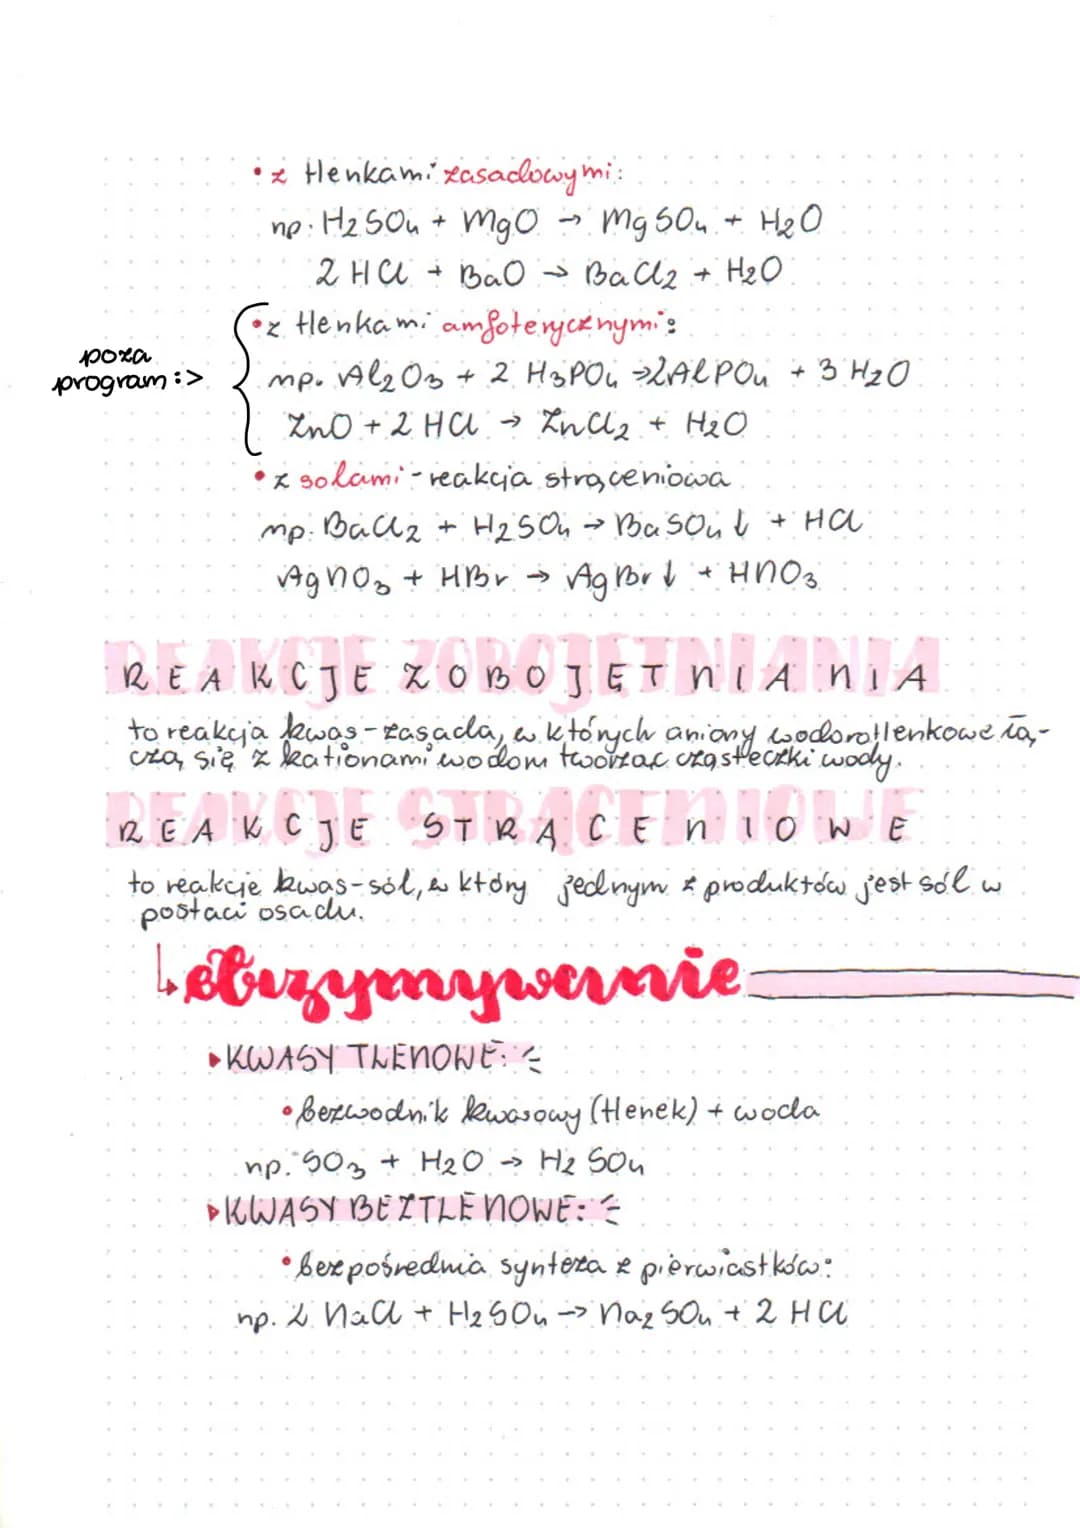 • z tlenkami zasadowymi:
np. H₂SO₄ + MgO → MgSO₄ + H₂O
2 HCl + BaO → BaCl₂ + H₂O
• z tlenkami amfoterycznymi:
poza
program :>
np. Al₂O₃ + 2 H₃PO₄ → 2AlPO₄ + 3 H₂O
ZnO + 2 HCl → ZnCl₂ + H₂O
• z solami - reakcja strąceniowa
np. BaCl₂ + H₂SO₄ → BaSO₄↓ + HCl
AgNO₃ + HBr → AgBr↓ + HNO₃
REAKCJE ZOBOJĘTNIANIA
to reakcja kwas-zasada, w których aniony wodorotlenkowe łą-
czą się z kationami wodoru tworząc cząsteczki wody.
REAKCJE STRĄCENIOWE
to reakcje kwas-sól, w który jednym z produktów jest sól w
postaci osadu.
↳ otrzymywanie
▸ KWASY TLENOWE:
• bezwodnik kwasowy (tlenek) + woda
np. SO₃ + H₂O → H₂SO₄
▸ KWASY BEZTLENOWE:
• bezpośrednia synteza z pierwiastków:
np. 2 NaCl + H₂SO₄ → Na₂SO₄ + 2 HCl